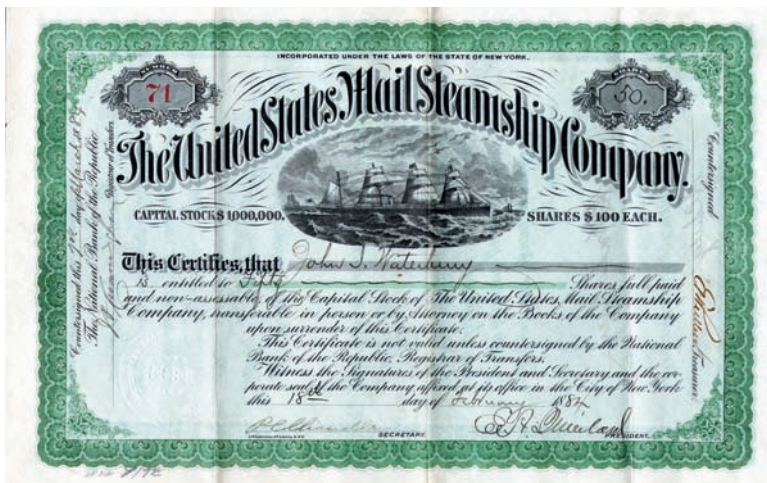 INCORPORATED UNDER THE LAWS OF THE STATE OF NEW YORK.
NUMBER
71
SHARES
50.
The United States Mail Steamship Company.
CAPITAL STOCK $ 1,000,000.
SHARES $ 100 EACH.
This Certifies, that John S. Waterbury
is entitled to Fifty Shares full paid
and non-assessable, of the Capital Stock of The United States Mail Steamship
Company, transferable in person or by Attorney on the Books of the Company
upon surrender of this Certificate.
This Certificate is not valid unless countersigned by the National
Bank of the Republic, Registrar of Transfers.
Witness the Signatures of the President and Secretary and the cor-
porate seal of the Company affixed at its office in the City of New York
this 18th day of February 1884
SECRETARY.
PRESIDENT.
Countersigned this day of March
The National Bank of the Republic
Registrar of Transfers.
Countersigned
Treasurer